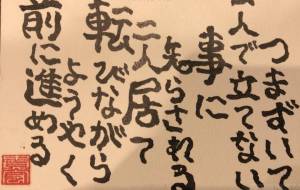 つまずいて
一人で立てない
事に
知らされる
二人居て
転びながら
ようやく
前に進める